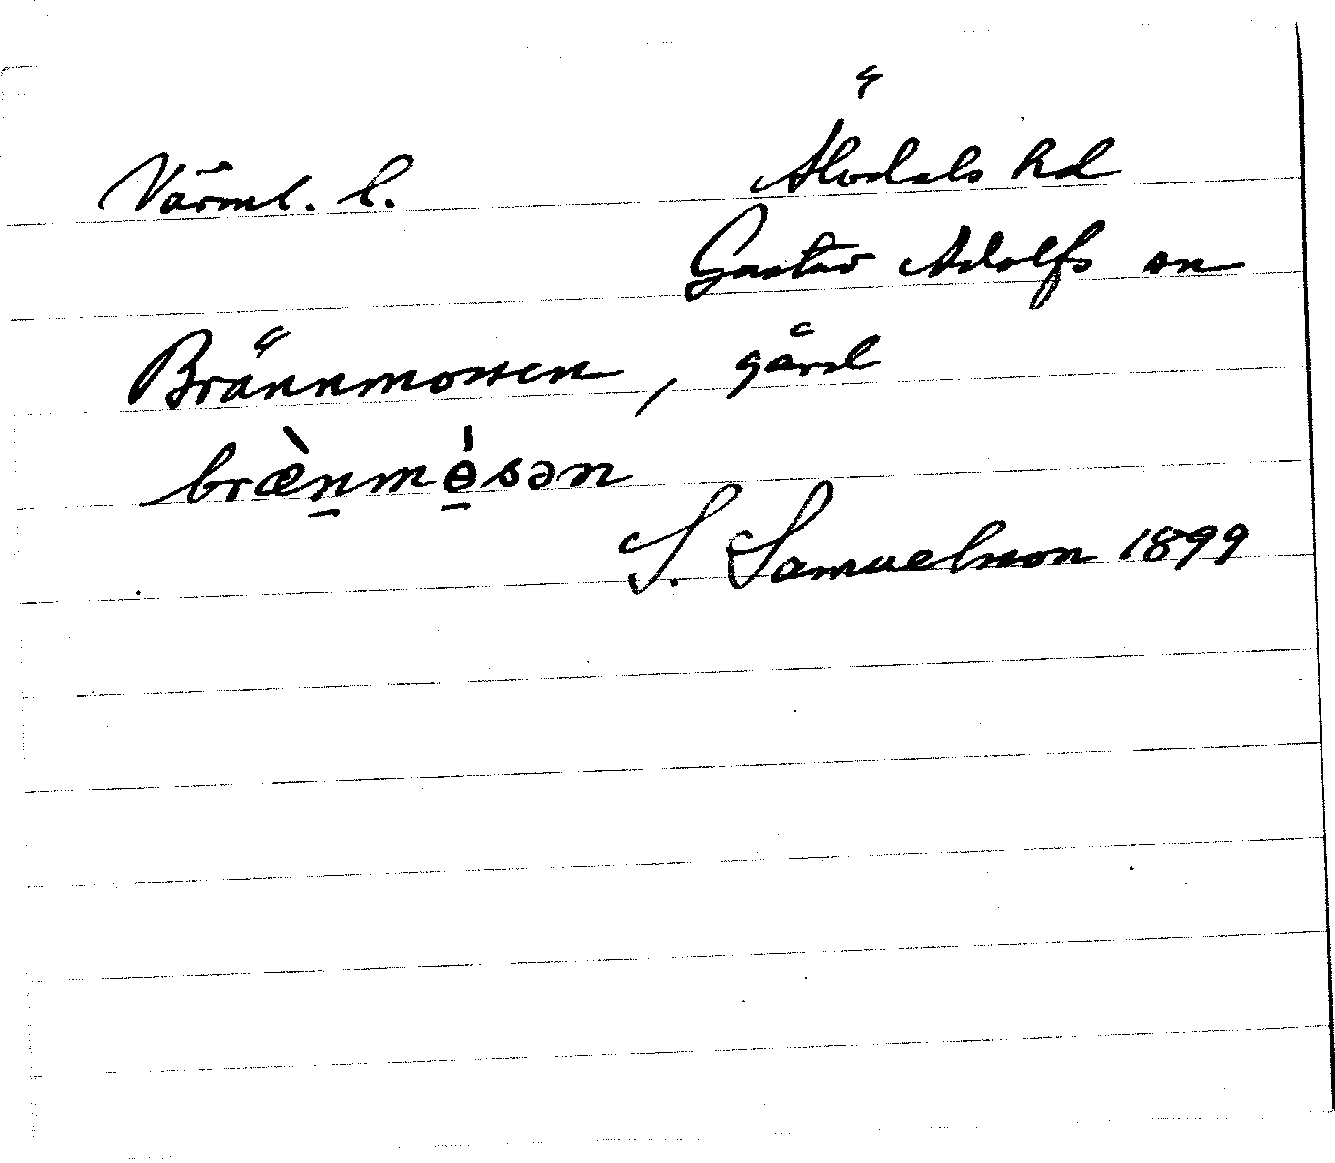 Värml. l. Älvdals hd
Gustav Adolfs sn
Brännmossen, gård
bræ̀n̠mɵ̠́sən
S. Samuelsson 1899